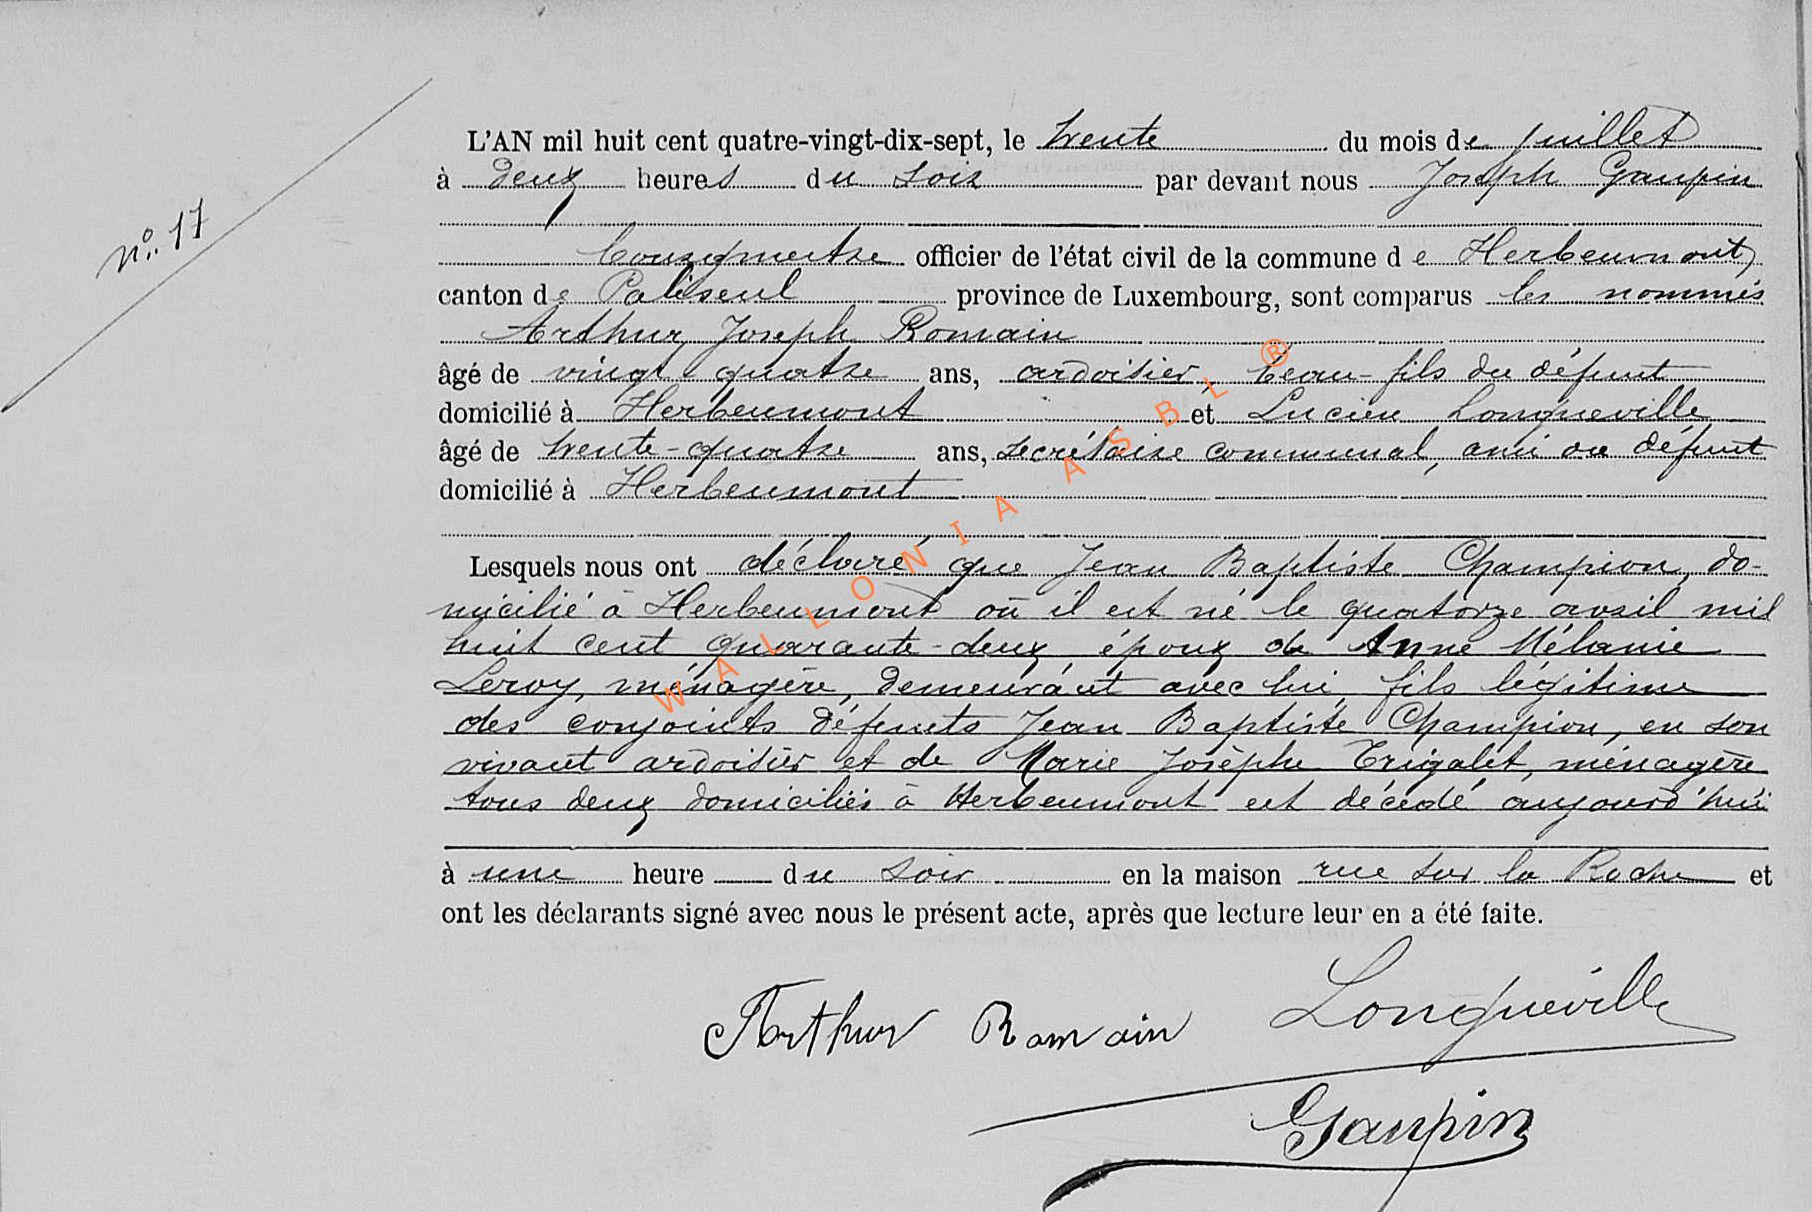 L'AN mil huit cent quatre-vingt-dix-sept, le trente du mois de juillet
à deux heures du soir par devant nous Joseph Gaupin
n° 17
Bourgmestre officier de l'état civil de la commune de Herbeumont,
canton de Paliseul province de Luxembourg, sont comparus les nommés
Arthur Joseph Romain
âgé de vingt quatre ans, ardoisier, beau-fils du défunt
domicilié à Herbeumont et Lucien Longueville
âgé de trente-quatre ans, secrétaire communal, ami du défunt
domicilié à Herbeumont
Lesquels nous ont déclaré que Jean Baptiste Champion, do-
micilié à Herbeumont où il est né le quatorze avril mil
huit cent quarante-deux époux de Anne Mélanie
Leroy, ménagère, demeurant avec lui, fils légitime
des conjoints défunts Jean Baptiste Champion, en son
vivant ardoisier et de Marie Josèphe Trigalet, ménagère
tous deux domiciliés à Herbeumont est décédé aujourd'hui
à une heure du soir en la maison rue sur la Roche et
ont les déclarants signé avec nous le présent acte, après que lecture leur en a été faite.
Arthur Romain Longueville
Gaupin
WALLONIA ASBL ®